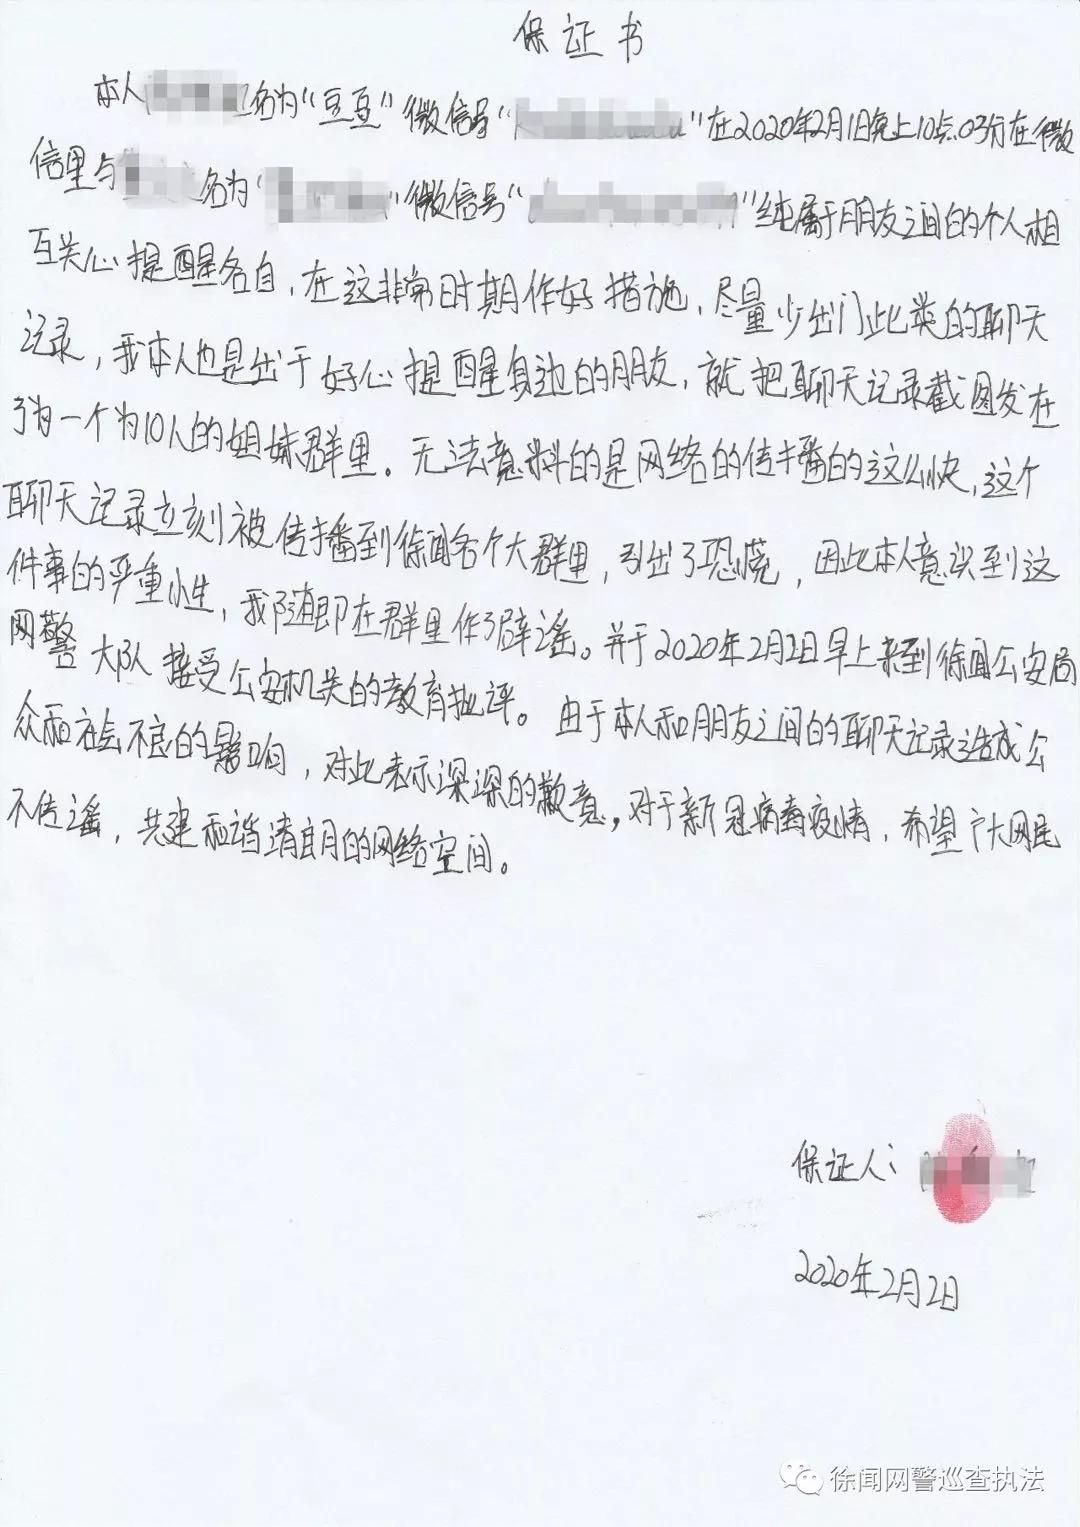 保证书
本人 名为“豆豆”微信号“ ”在2020年2月1日晚上10点03分在微
信里与 名为“ ”微信号“ ”纯属于朋友之间的个人相
互关心提醒各自,在这非常时期作好措施,尽量少出门此类的聊天
记录,我本人也是出于好心提醒身边的朋友,就把聊天记录截图发在
了有一个为10人的姐妹群里。无法意料的是网络的传播的这么快,这个
聊天记录立刻被传播到徐闻各个大群里,引出了恐慌,因此本人意识到这
件事的严重性,我随即在群里作了辟谣。并于2020年2月2日早上来到徐闻公安局
网警大队接受公安机关的教育批评。由于本人和朋友之间的聊天记录造成公
众和社会不良的影响,对此表示深深的歉意,对于新冠病毒疫情,希望广大网民
不传谣,共建和谐清朗的网络空间。
保证人:
2020年2月2日
徐闻网警巡查执法